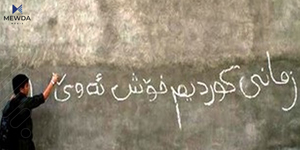 MEWDA
زمانی کوردیم خۆش ئەوێ